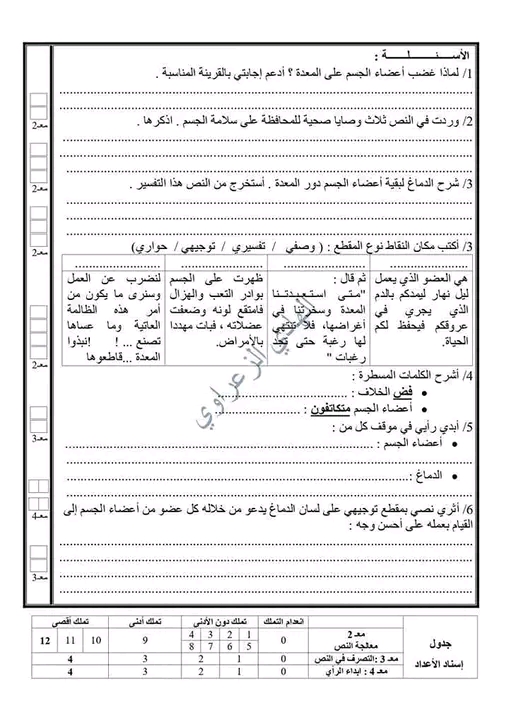 الأسئلة :
1/ لماذا غضب أعضاء الجسم على المعدة ؟ أدعم إجابتي بالقرينة المناسبة .
معـ2
2/ وردت في النص ثلاث وصايا صحية للمحافظة على سلامة الجسم . اذكرها .
معـ2
3/ شرح الدماغ لبقية أعضاء الجسم دور المعدة . أستخرج من النص هذا التفسير .
معـ2
3/ أكتب مكان النقاط نوع المقطع : ( وصفي / تفسيري / توجيهي / حواري)
هي العضو الذي يعمل
ليل نهار ليمدكم بالدم
الذي يجري في
عروقكم فيحفظ لكم
الحياة.
ثم قال :
"متى استعبدتنا
المعدة وسخرتنا في
أغراضها، فلا تنتهي
لها رغبة حتى تجد
رغبات "
ظهرت على الجسم
بوادر التعب والهزال
فامتقع لونه وضعفت
عضلاته ، فبات مهددا
بالأمراض.
لنضرب عن العمل
وسنرى ما يكون من
أمر هذه الظالمة
العاتية وما عساها
تصنع ... ! !انبذوا
المعدة ...قاطعوها
4/ أشرح الكلمات المسطرة :
• فض الخلاف :
• أعضاء الجسم متكاتفون :
معـ3
5/ أبدي رأيي في موقف كل من :
• أعضاء الجسم :
• الدماغ :
معـ4
6/ أثري نصي بمقطع توجيهي على لسان الدماغ يدعو من خلاله كل عضو من أعضاء الجسم إلى
القيام بعمله على أحسن وجه :
معـ3
جدول
إسناد الأعداد
انعدام التملك تملك دون الأدنى تملك أدنى تملك أقصى
معـ 2
معالجة النص
0 1 2 3 4 9 10 11 12
5 6 7 8
معـ 3 :التصرف في النص 0 1 2 3 4
معـ 4 : ابداء الرأي 0 1 2 3 4